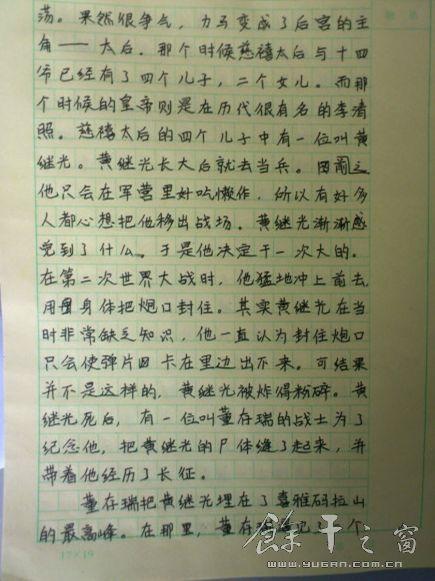 荡。果然很争气，力马变成了后宫的主
角——太后。那个时候慈禧太后与十四
爷已经有了四个儿子，二个女儿。而那
个时候的皇帝则是在历代很有名的李清
照。慈禧太后的四个儿子中有一位叫黄
继光。黄继光长大后就去当兵。因而
他只会在军营里好吃懒作，所以有好多
人都心想把他移出战场。黄继光渐渐感
觉到了什么。于是他决定干一次大的。
在第二次世界大战时，他猛地冲上前去
用身体把炮口封住。其实黄继光在当
时非常缺乏知识，他一直认为封住炮口
只会使弹片卡在里边出不来。可结果
并不是这样的，黄继光被炸得粉碎。黄
继光死后，有一位叫董存瑞的战士为了
纪念他，把黄继光的尸体缝了起来，并
带着他经历了长征。
董存瑞把黄继光埋在了喜雅码拉山
的最高峰。在那里，董存瑞了一个
17×19
馀干之窗
www.yugan.com.cn